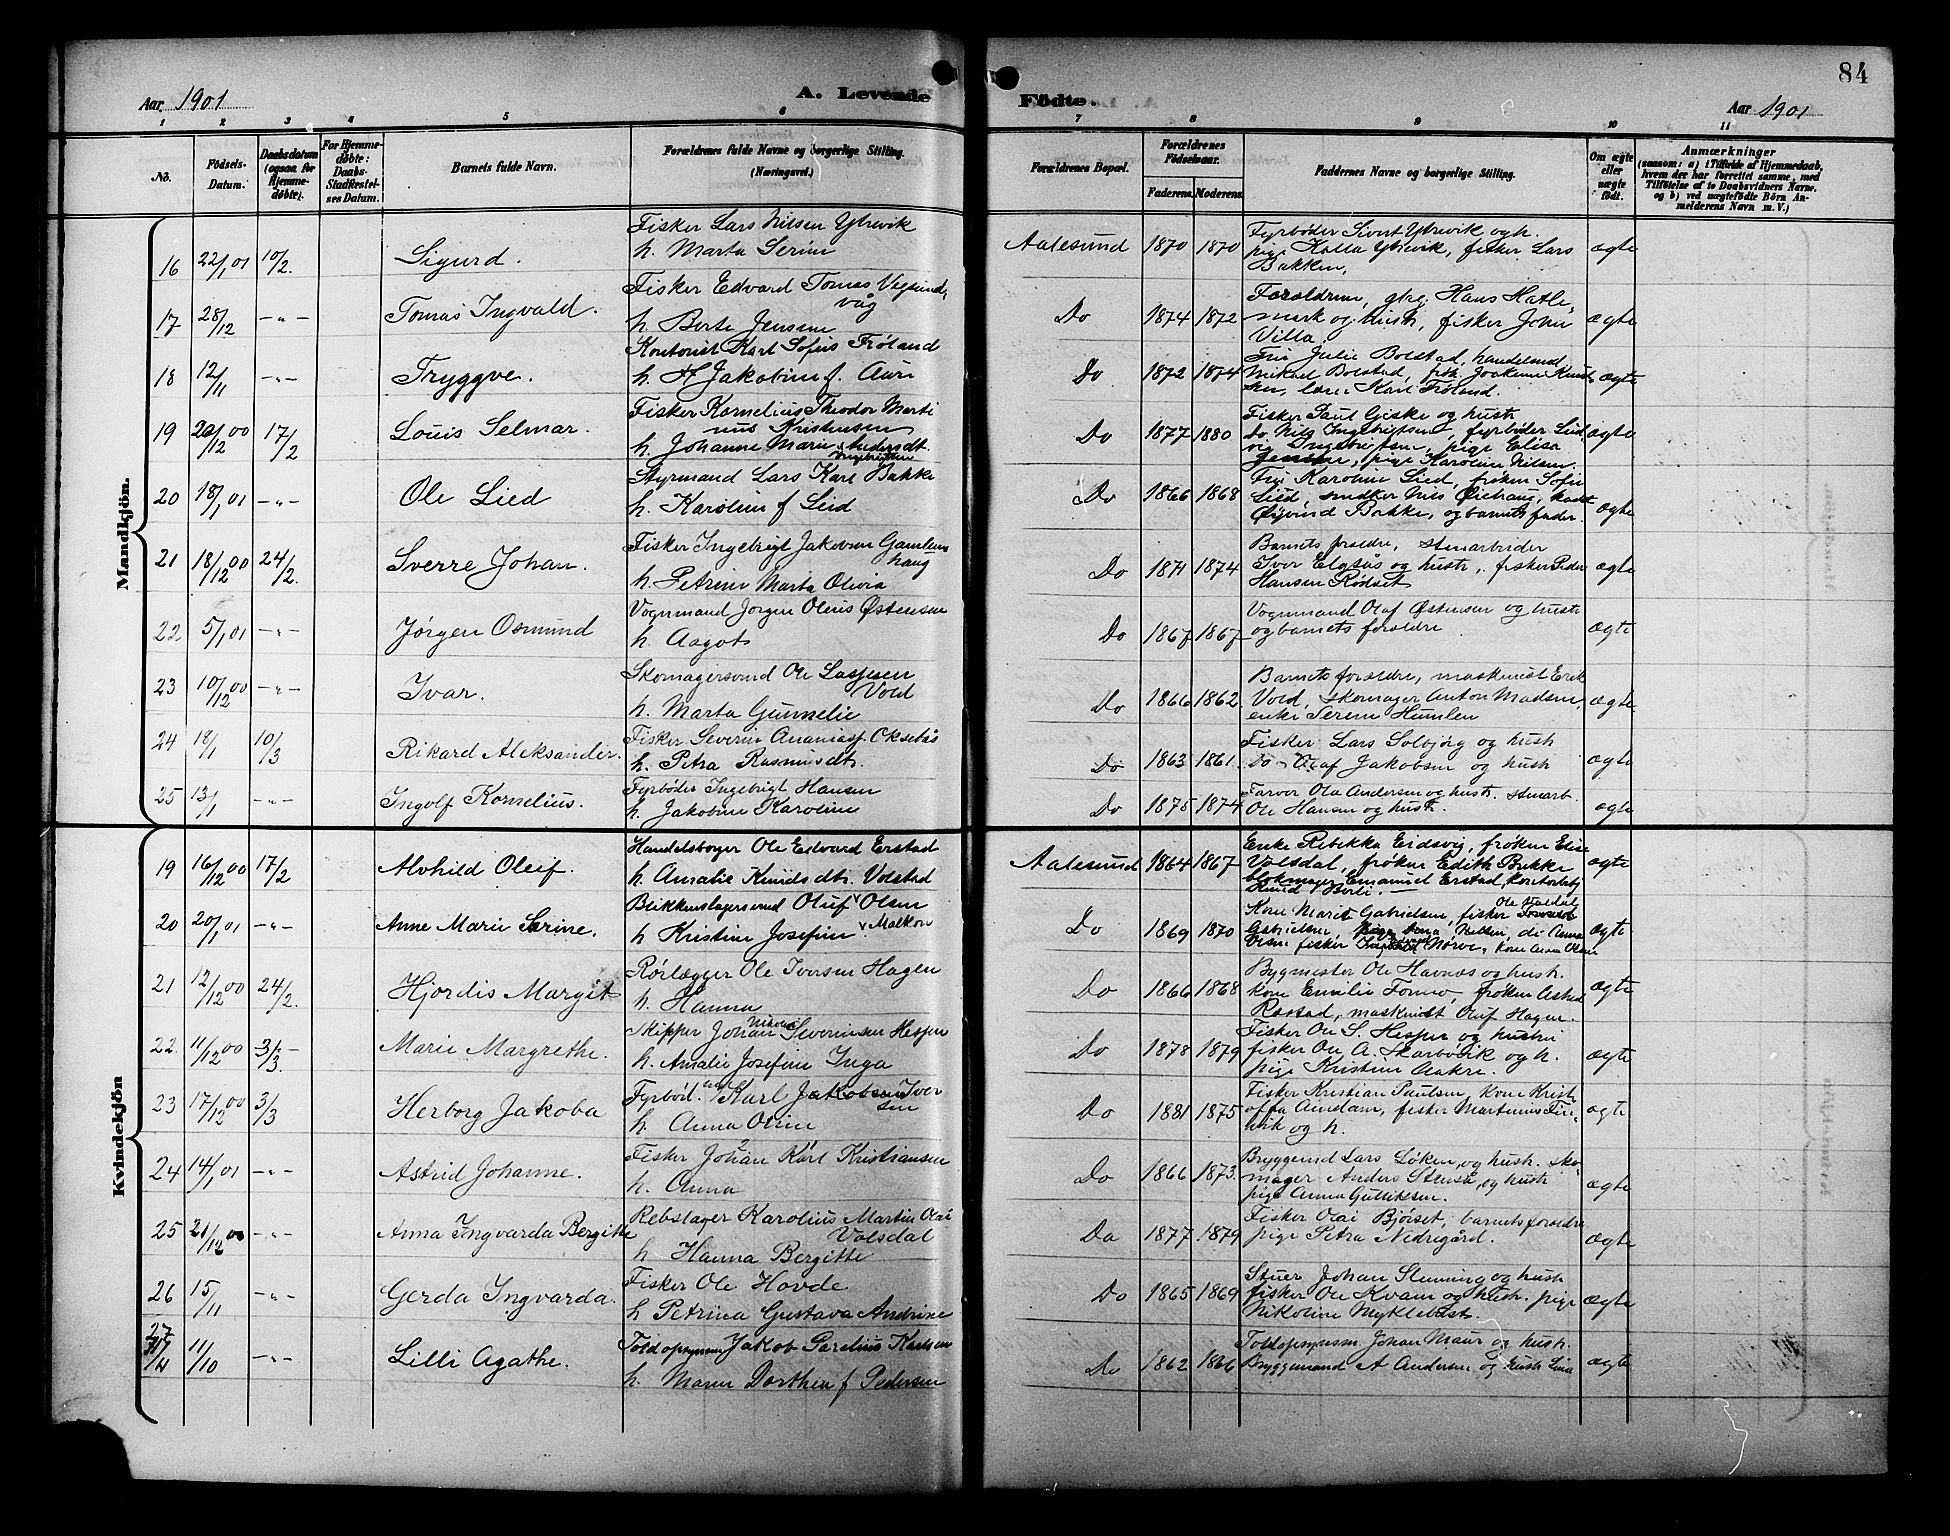 84
Aar 1901
A. Levende Födte.
Aar 1901
1 2 3 4 5 6 7 8 9 10 11
No.
Födsels-Datum.
Daabsdatum (ogsaa for Hjemmedøbte).
For Hjemmedøbte: Daabs-Stadfæstelses Datum.
Barnets fulde Navn.
Forældrenes fulde Navne og borgerlige Stilling. (Næringsvei.)
Forældrenes Bopæl.
Forældrenes Födselsaar.
Faderens. Moderens.
Faddernes Navne og borgerlige Stilling.
Om ægte eller uægte födt.
Anmærkninger
(saasom: a) i Tilfælde af Hjemmedaab, hvem der har forrettet samme, med Tilföielse af to Daabsvidners Navne, og b) ved uægtefödte Börn Anmelderens Navn m.V.)
Mandkjön.
16 22/1 01 10/2. Sigurd. Fisker Lars Nilsen Ytrevik
h. Marta Serine
Aalesund 1870 1870 Fyrbøder Sivert Ytrevik og h.
pige Kalla Ytrevik, fisker Lars
Bakken, ægte
17 28/12 -"- Tomas Ingvald. Fisker Edvard Tomas Vegsund,
våg
h. Berte Jensine
Do 1874 1872 Forældrene, gbrg. Hans Hatle-
mark og hustr, fisker John
Villa. ægte
18 12/11 -"- Tryggve. Kontorist Karl Sofus Frøland
h. Jakobine f. Aure
Do 1872 1874 Fru Julie Bolstad, handelsmd
Mikael Bolstad, frk. Joakime Knud
sen, lærer Karl Frøland. ægte
19 20/12 00 17/2 Louis Selmar. Fisker Kornelius Theodor Marti
nus Kristensen
h. Johanne Marie Andersdt.
Ingebrigtsen
Do 1877 1880 Fisker Paul Giske og hustr
Do. Nils Ingebrigtsen, fyrbøder
Ingebrigtsen, pige Elisa
Jensine, pige Karoline Nilsen. ægte
20 18/1 01 -"- Ole Lied Styrmand Lars Karl Bakke
h. Karoline f Lied
Do 1866 1868 Fru Karoline Lied, frøken Sofie
Lied, snedker Nils Øiehaug, kadt
Øivind Bakke, og barnets fader. ægte
21 18/12 00 24/2. Sverre Johan. Fisker Ingebrigt Jakobsen Gamlem
haug
h. Petrine Marta Olivia
Do 1871 1874 Barnets forældre, stenarbeider
Iver Elgsås og hustr., fisker Peder
Hansen Rødset ægte
22 5/1 01 -"- Jørgen Osmund Vognmand Jørgen Olaus Østensen
h. Aagot
Do 1867 1867 Vognmand Olaf Østensen og hustr
og barnets forældre ægte
23 10/12 00 -"- Ivar. Skomagersvend Ole Lassesen
Vold
h. Marta Gunnelie
Do 1866 1862 Barnets forældre, maskinist Erik
Vold, skomager Anton Madsen,
enke Serene Humlen ægte
24 18/1 10/3 Rikard Aleksander. Fisker Severin Ananiass. Oksebås
h. Petra Rasmusdtr.
Do 1863 1861. Fisker Lars Solbjørg og hustr
Do - Olaf Jakobsen og hustr ægte
25 13/1 -"- Ingolf Kornelius. Fyrbøder Ingebrigt Hansen
h. Jakobine Karoline
Do 1875 1874 Farver Ola Andersen og hustr. stenarb.
Ole Hansen og hustr. ægte
Kvindekjön
19 16/12 00 17/2 Alvhild Oleif. Handelsborger Ole Edvard Erstad
h. Amalie Knudsdtr. Volstad
Aalesund 1864 1867 Enke Rebekka Eidsvig, frøken Elise
Volsdal, frøken Edith Bakke
blokmager Emanuel Erstad,
Knud ægte
20 20/1 01 -"- Anne Marie Serine. Blikkenslagersvend Oluf Olsen
h Kristine Josefine Malkon
Do 1869 1870 Kone Marit Gabrielsen, fisker Ole Valdal
Gabrielsen, pige Anna Nilsen, do Anna
Olsen fisker Nørve, kone Anna Olsen ægte
21 12/12 00 24/2. Hjordis Margit Rørlægger Ole Iversen Hagen
h. Hanna
Do 1866 1868 Bygmester Ole Havnæs og hustr.
kone Emilie Tomro, frøken Astrid
Røstad, maskinist Oluf Hagen. ægte
22. 11/12 00 3/3. Marie Margrethe. Skipper Johan Nikolai Severinsen Hessen
h. Amalie Josefine Inga
Do 1878 1879 Fisker Ole S. Hessen og hustru
fisker Ole A. Skarbøvik og h.
pige Kristine Aakre. ægte
23 17/12 00 3/3 Herborg Jakoba Fyrbød. Karl Jakobsen Iver
sen
h. Anna Oline
Do 1881 1875 Fisker Kristian Paulsen, kone Krist
offa Amdam, fisker Martinus
vik og h. ægte
24 14/1 01 -"- Astrid Johanne. Fisker Johan Karl Kristiansen
h. Anna
Do 1866 1873. Bryggemd Lars Løken, og hustr. sko-
mager Anders Stenså, og hustr
pige Anna Gulliksen. ægte
25 21/12 00 -"- Anna Ingvarda Bergitte Rebslager Karolius Martin Olai
Volsdal
h Hanna Bergitte
Do 1877 1879 Fisker Olai Bjørset, barnets forældre
pige Petra Nedregård. ægte
26 15/11 -"- Gerda Ingvarda. Fisker Ole Hovde
h Petrina Gustava Andrine
Do 1865 1869 Stuer Johan Slemming og hustr
fisker Ole Kvam og hustr. pige
Nikoline Myklebust ægte
27 11/10 -"- Lilli Agathe. Toldopsynsm Jakob Parelius Karlsen
h. Maren Dorthea f Pedersen
Do 1862 1866 Toldopsynsm Johan Maur og hustr.
Bryggemand A Andersen og hustr Lina ægte